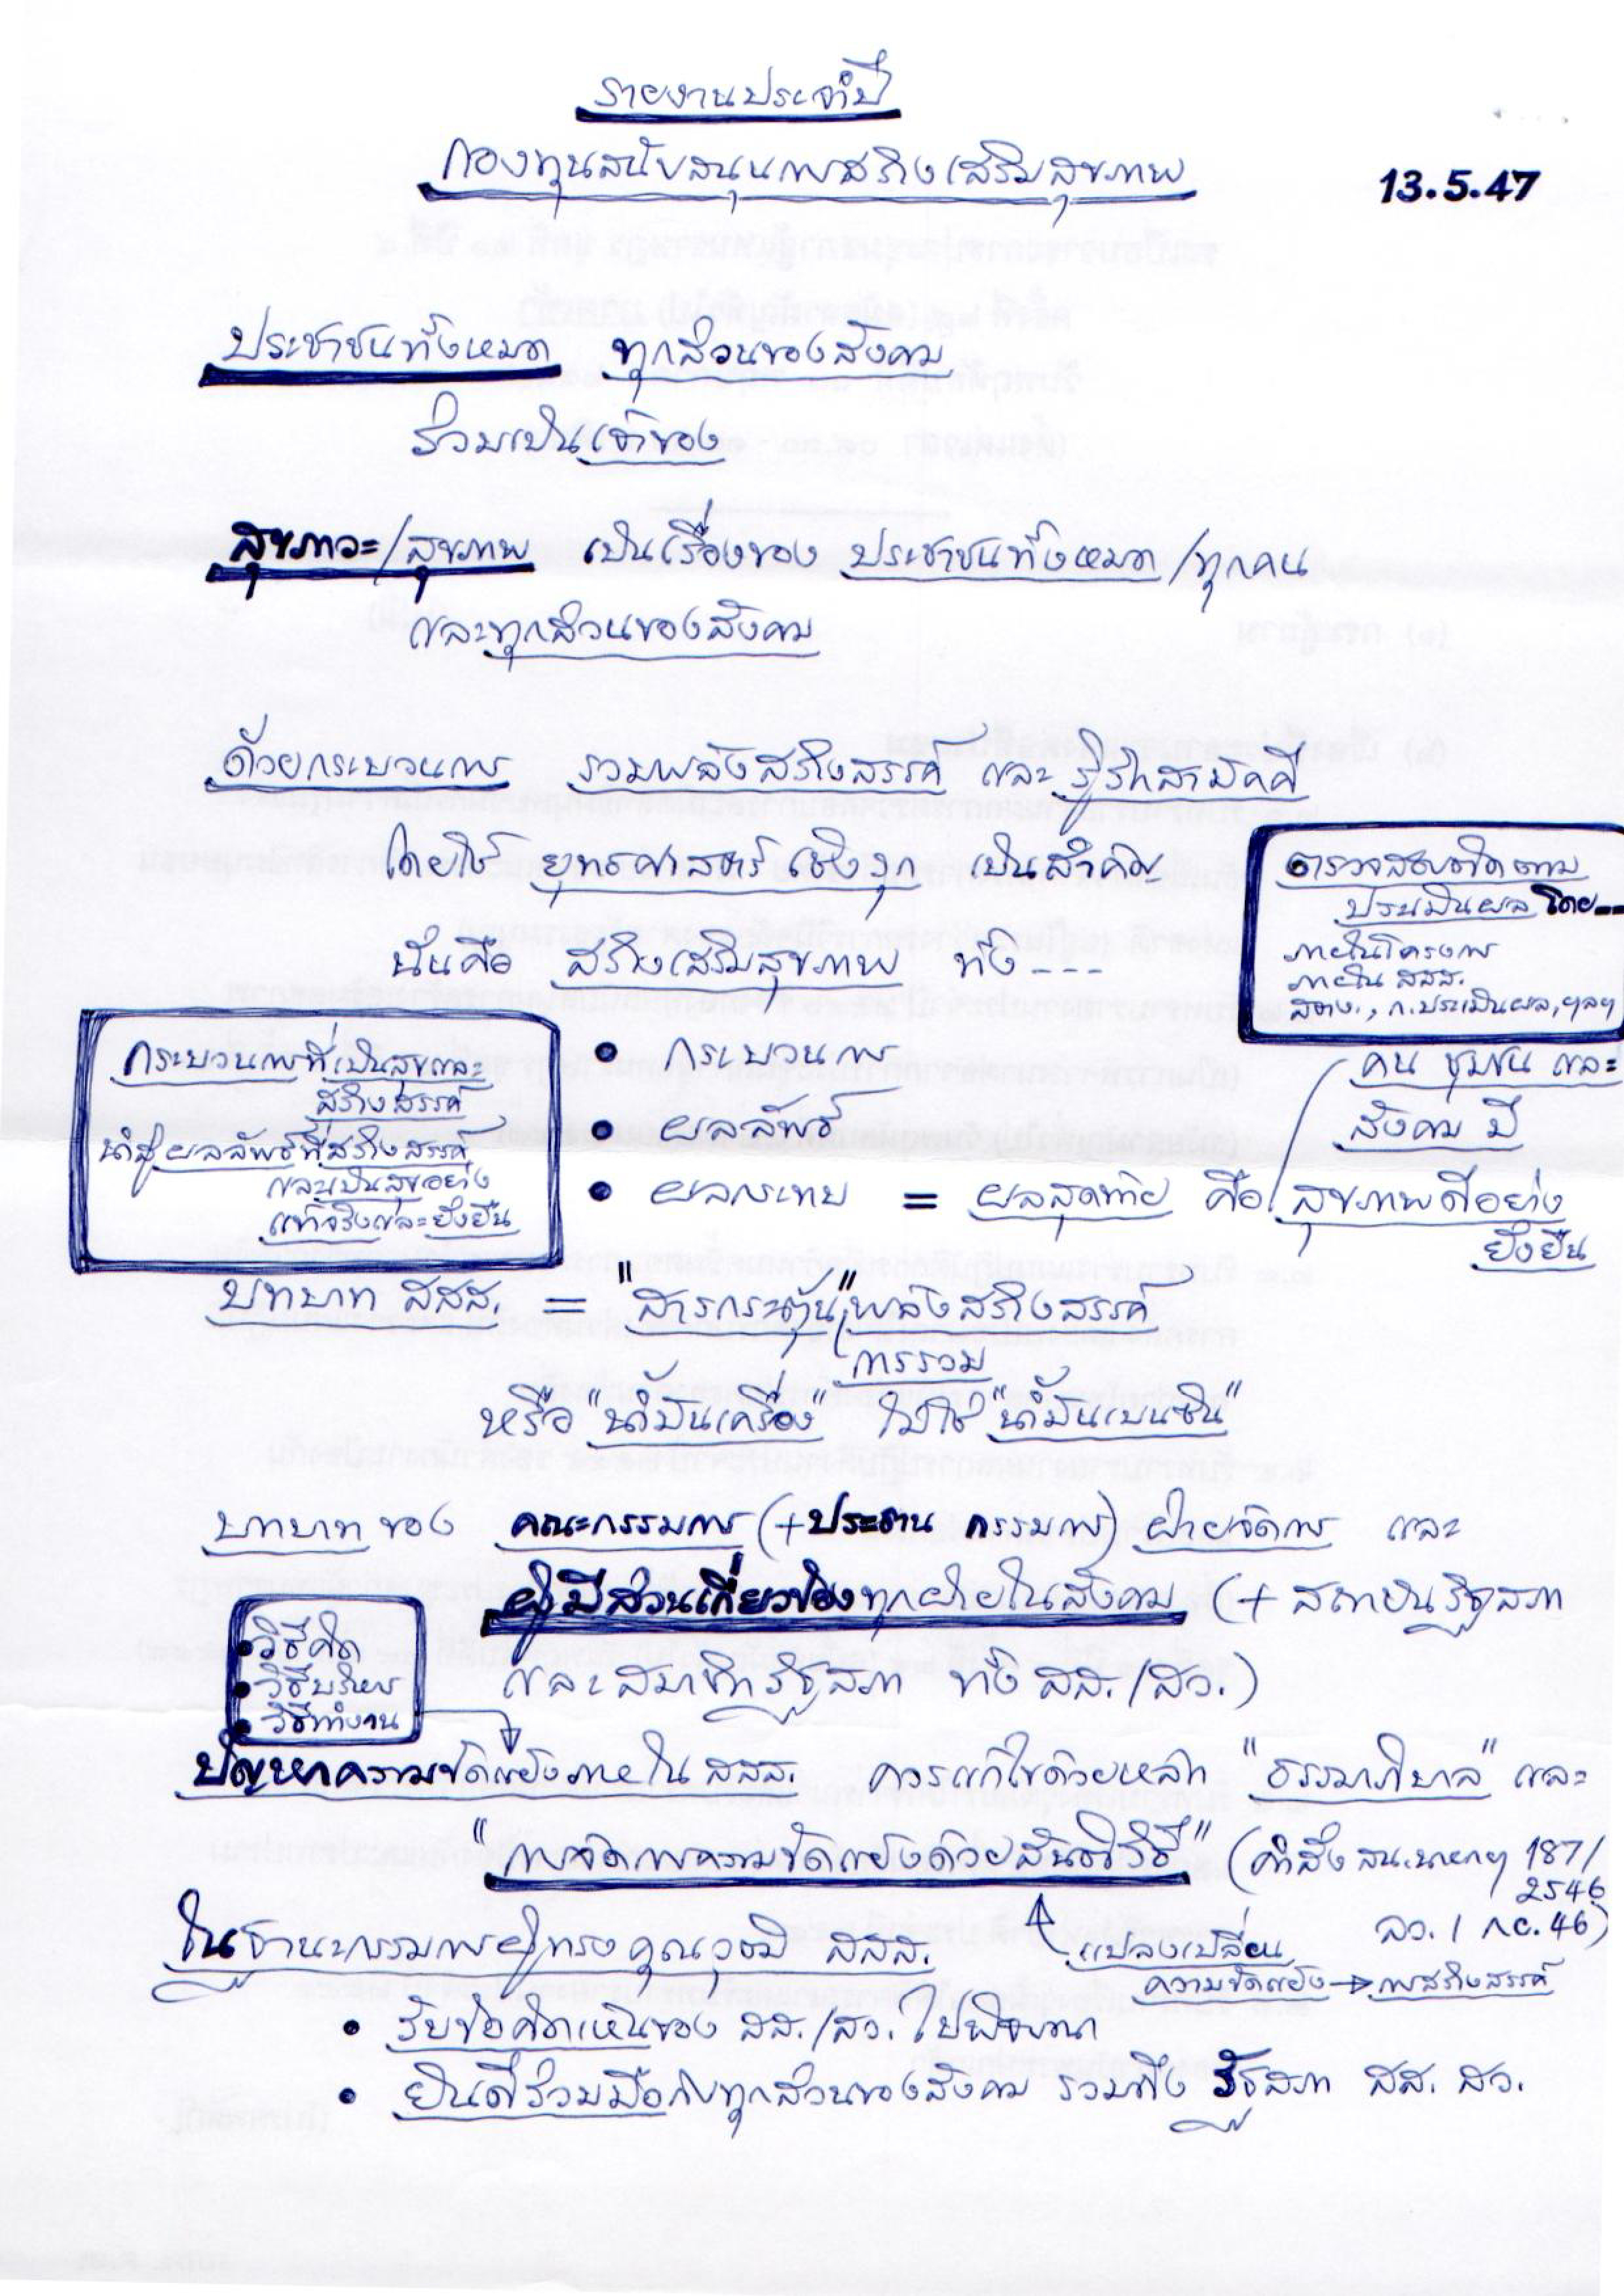 รายงานประจำปี
กองทุนสนับสนุนการสร้างเสริมสุขภาพ
13.5.47
ประชาชนทั้งหมด ทุกส่วนของสังคม
ร่วมเป็นเจ้าของ
สุขภาวะ/สุขภาพ เป็นเรื่องของ ประชาชนทั้งหมด/ทุกคน
และทุกส่วนของสังคม
ด้วยกระบวนการ รวมพลังสร้างสรรค์ และ รู้รักสามัคคี
โดยใช้ ยุทธศาสตร์เชิงรุก เป็นสำคัญ
นั่นคือ สร้างเสริมสุขภาพ ทั้ง ----
ตรวจสอบติดตาม
ประเมินผล โดย---
ภายในโครงการ
ภายใน สสส.
สตง., ก.ประเมินผล, ฯลฯ
กระบวนการที่เป็นสุขและ
สร้างสรรค์
นำสู่ผลลัพธ์ที่สร้างสรรค์
และเป็นสุขอย่าง
แท้จริงและยั่งยืน
• กระบวนการ
• ผลลัพธ์
• ผลกระทบ = ผลสุดท้าย คือ สุขภาพดีอย่าง
ยั่งยืน
คน ชุมชน และ
สังคม มี
บทบาท สสส. = "สารกระตุ้น" พลังสร้างสรรค์
การรวม
หรือ "น้ำมันเครื่อง" ไม่ใช่ "น้ำมันเบนซิน"
บทบาท ของ คณะกรรมการ (+ประธาน กรรมการ) ฝ่ายจัดการ และ
ผู้มีส่วนเกี่ยวข้องทุกฝ่ายในสังคม (+ สถาบันรัฐสภา
และสมาชิกรัฐสภา ทั้ง สส./สว.)
• วิธีคิด
• วิธีบริหาร
• วิธีทำงาน
ปัญหาความขัดแย้งภายใน สสส. ควรแก้ไขด้วยหลัก "ธรรมาภิบาล" และ
"การจัดการความขัดแย้งด้วยสันติวิธี" (คำสั่ง สน.นายกฯ 187/
2546
ลว. 1 กย. 46)
แปลงเปลี่ยน
ความขัดแย้ง → การสร้างสรรค์
ในฐานะกรรมการผู้ทรงคุณวุฒิ สสส.
• รับข้อคิดเห็นของ สส./สว. ไปพิจารณา
• ยินดีร่วมมือกับทุกส่วนของสังคม รวมถึง รัฐสภา สส. สว.